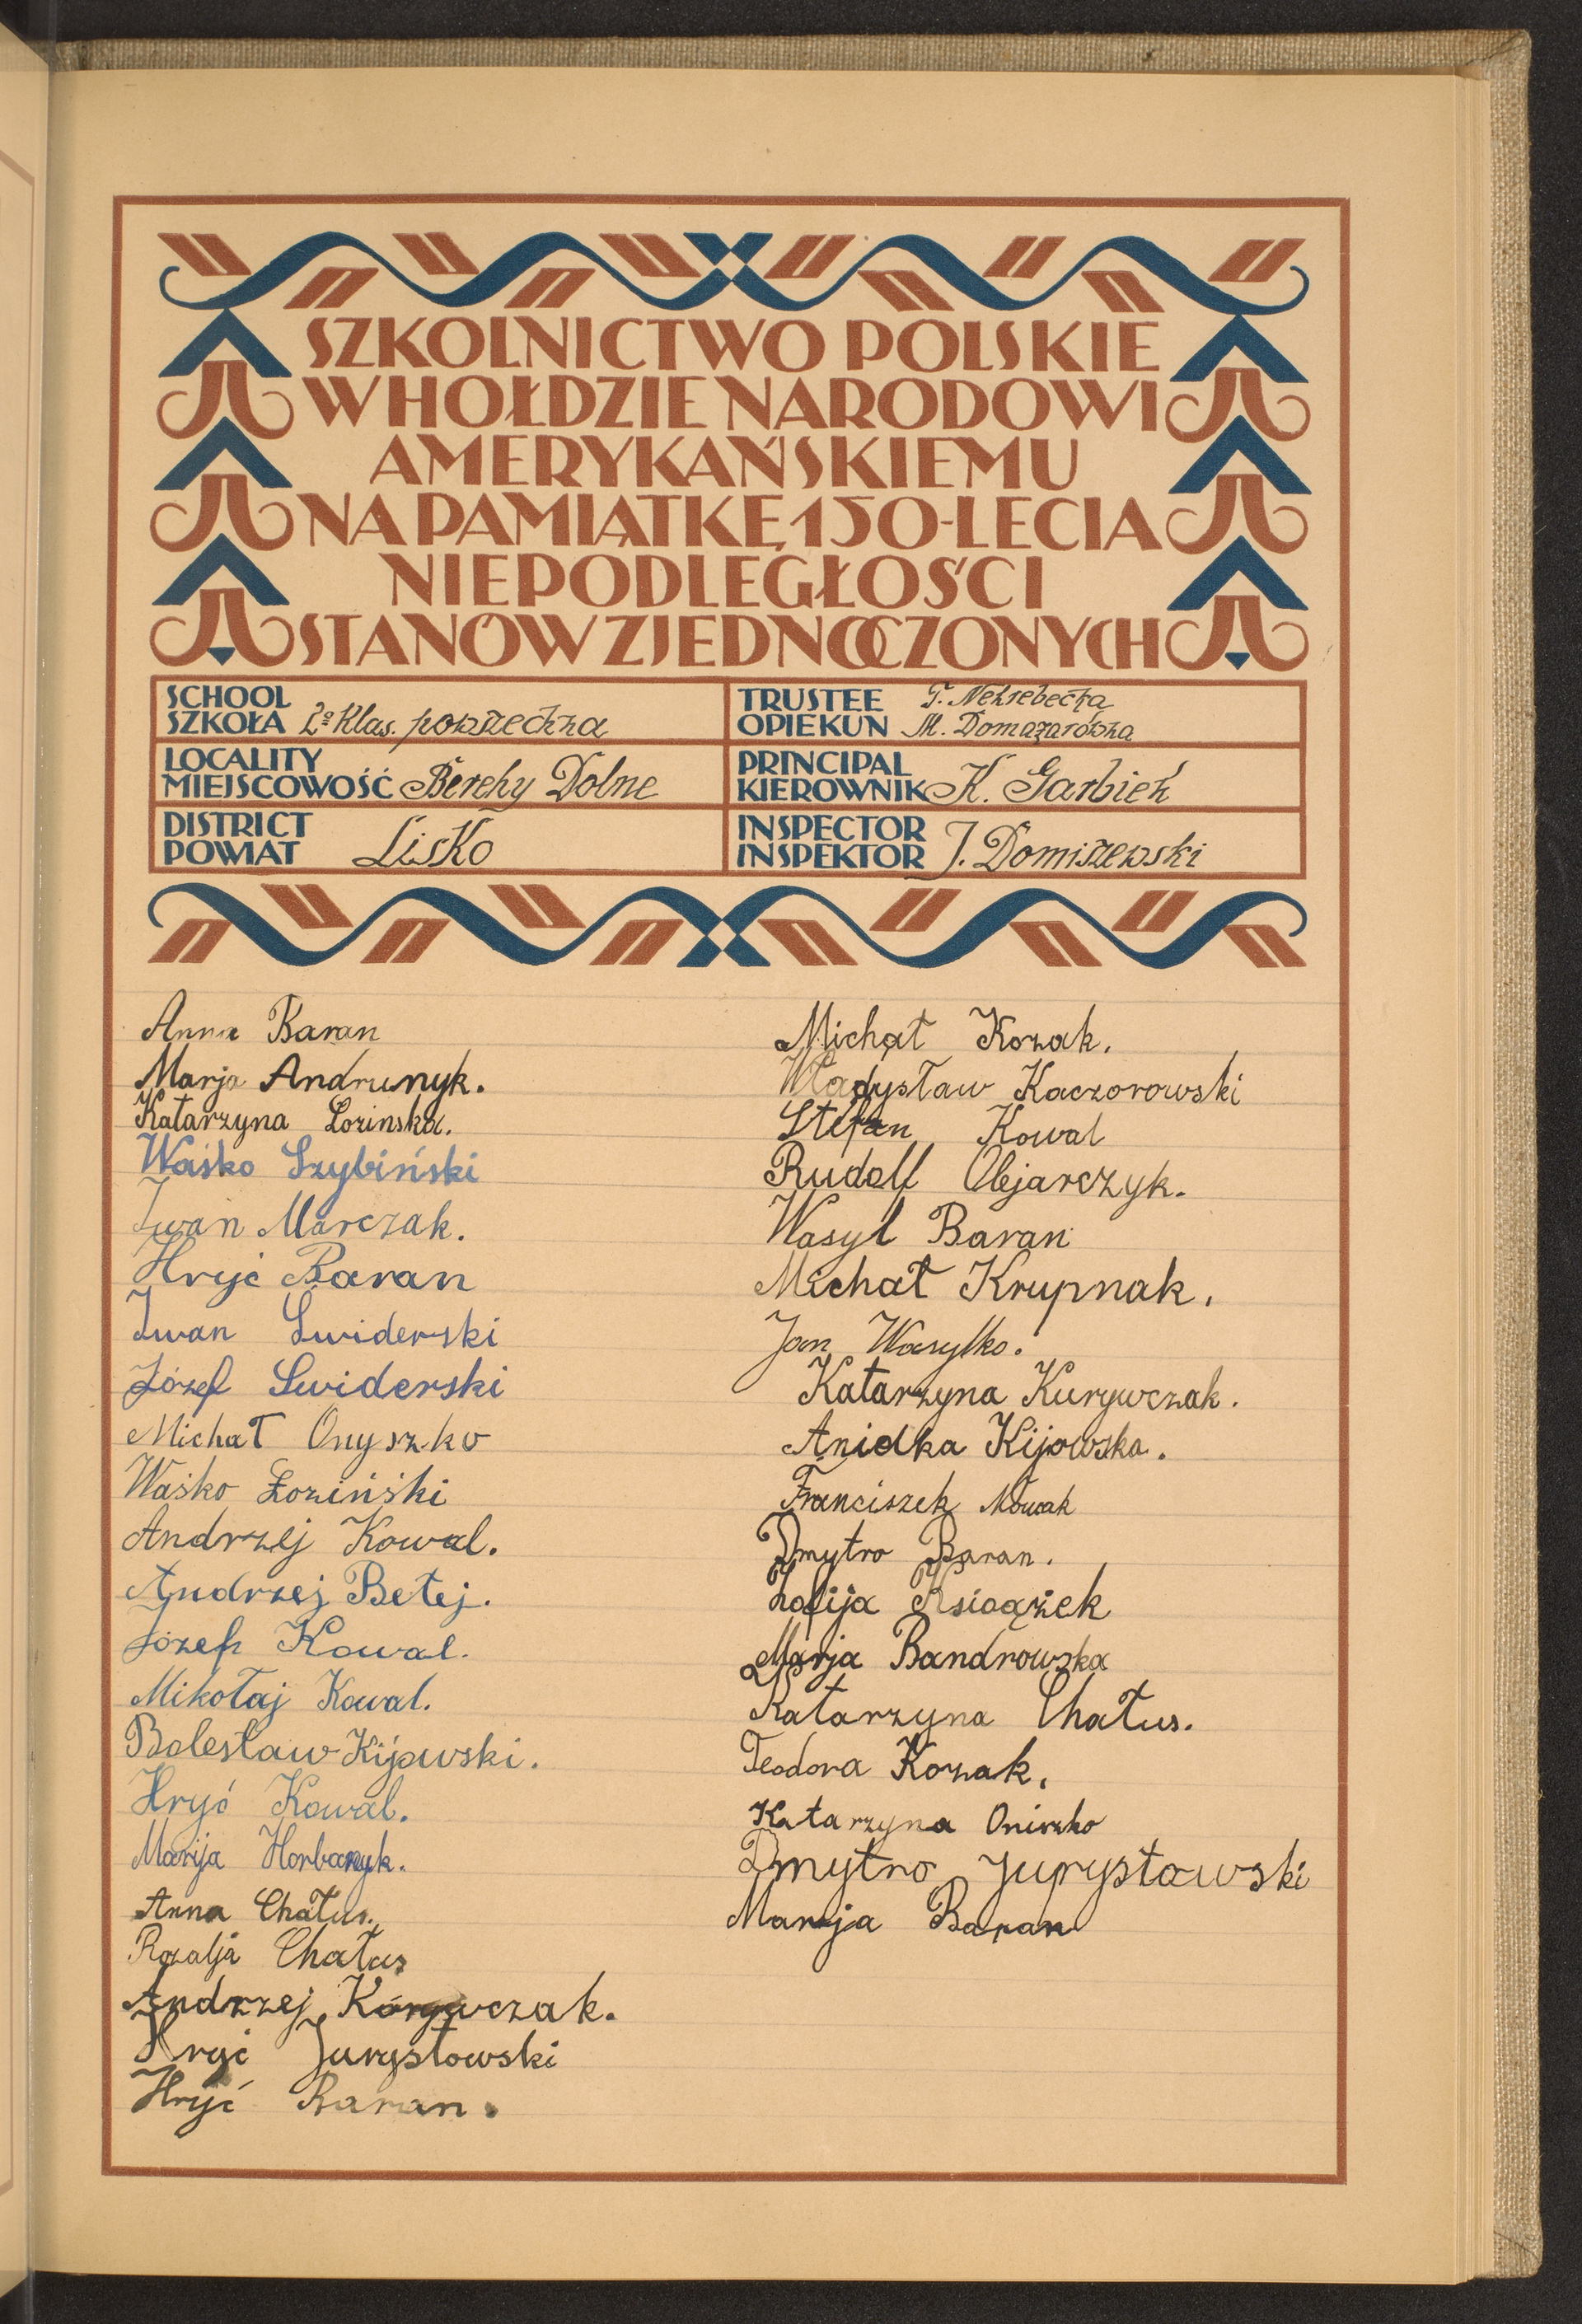 SZKOLNICTWO POLSKIE
W HOŁDZIE NARODOWI
AMERYKAŃSKIEMU
NA PAMIĄTKĘ 150-LECIA
NIEPODLEGŁOŚCI
STANÓW ZJEDNOCZONYCH
SCHOOL
SZKOŁA 2º Klas. powszechna
LOCALITY
MIEJSCOWOŚĆ Berehy Dolne
DISTRICT
POWIAT Lisko
TRUSTEE T. Nehrebecka
OPIEKUN M. Domazarówna
PRINCIPAL
KIEROWNIK K. Garbień
INSPECTOR
INSPEKTOR J. Domiszewski
Anna Baran
Marja Andrunyk.
Katarzyna Łozinska.
Waśko Szybiński
Iwan Marczak.
Hryć Baran
Iwan Swiderski
Józef Swiderski
Michał Onyszko
Waśko Łoziński
Andrzej Kowal.
Andrzej Betej.
Józef Kowal.
Mikołaj Kowal.
Bolesław Kijowski.
Hryć Kowal.
Marija Horbanyk.
Anna Chatus.
Rozalja Chatus
Andrzej Korywczak.
Hryć Jurystowski
Hryć Baran.
Michał Kozak.
Władysław Kaczorowski
Stefan Kowal
Rudolf Olejarczyk.
Wasyl Baran
Michał Krupnak.
Jan Wasylko.
Katarzyna Kurywczak.
Anidka Kijowska.
Franciszek Nowak
Dmytro Baran.
Zofija Ksioążek
Marja Bandrowska
Katarzyna Chatus.
Teodora Kozak.
Katarzyna Oniszko
Dmytro Jurystowski
Marija Baran